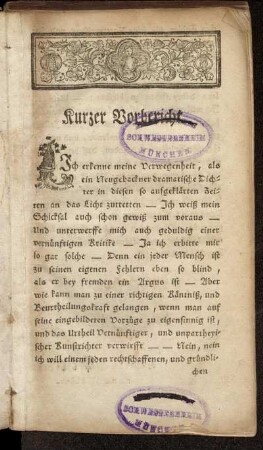 Kurzer Vorbericht.
Ich erkenne meine Verwegenheit, als
ein Neugebackner dramatische Dich-
ter in diesen so aufgeklärten Zei-
ten an das Licht zutretten — Ich weiß mein
Schicksal auch schon gewiß zum voraus —
Und unterwerffe mich auch geduldig einer
vernünftigen Kritike — Ja ich erbitte mir
so gar solche — Denn ein jeder Mensch ist
zu seinen eigenen Fehlern eben so blind,
als er bey fremden ein Argus ist — Aber
wie kann man zu einer richtigen Käntniß, und
Beurtheilungskraft gelangen, wenn man auf
seine eingebilderen Vorzüge zu eigensinnig ist,
und das Urtheil Vernünftiger, und unpartheyi-
scher Kunstrichter verwirfft — — Nein, nein
ich will einem jeden rechtschaffenen, und gründli-
chen
MÜNCHEN
MÜNCHEN